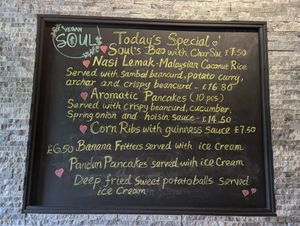 VEGAN
SOUL
Today's Special
Soul's Bao with Char Siu £7.50
Nasi Lemak-Malaysian Coconut Rice
Served with sambal beancurd, potato curry,
archar and crispy beancurd - £16.80
Aromatic Pancakes (10 pcs)
Served with crispy beancurd, cucumber,
Spring onion and hoisin sauce - £14.50
Corn Ribs with guinness sauce £7.50
£6.50 Banana Fritters served with ice cream
Pandan Pancakes served with ice Cream
Deep fried sweet potato balls served
ice Cream